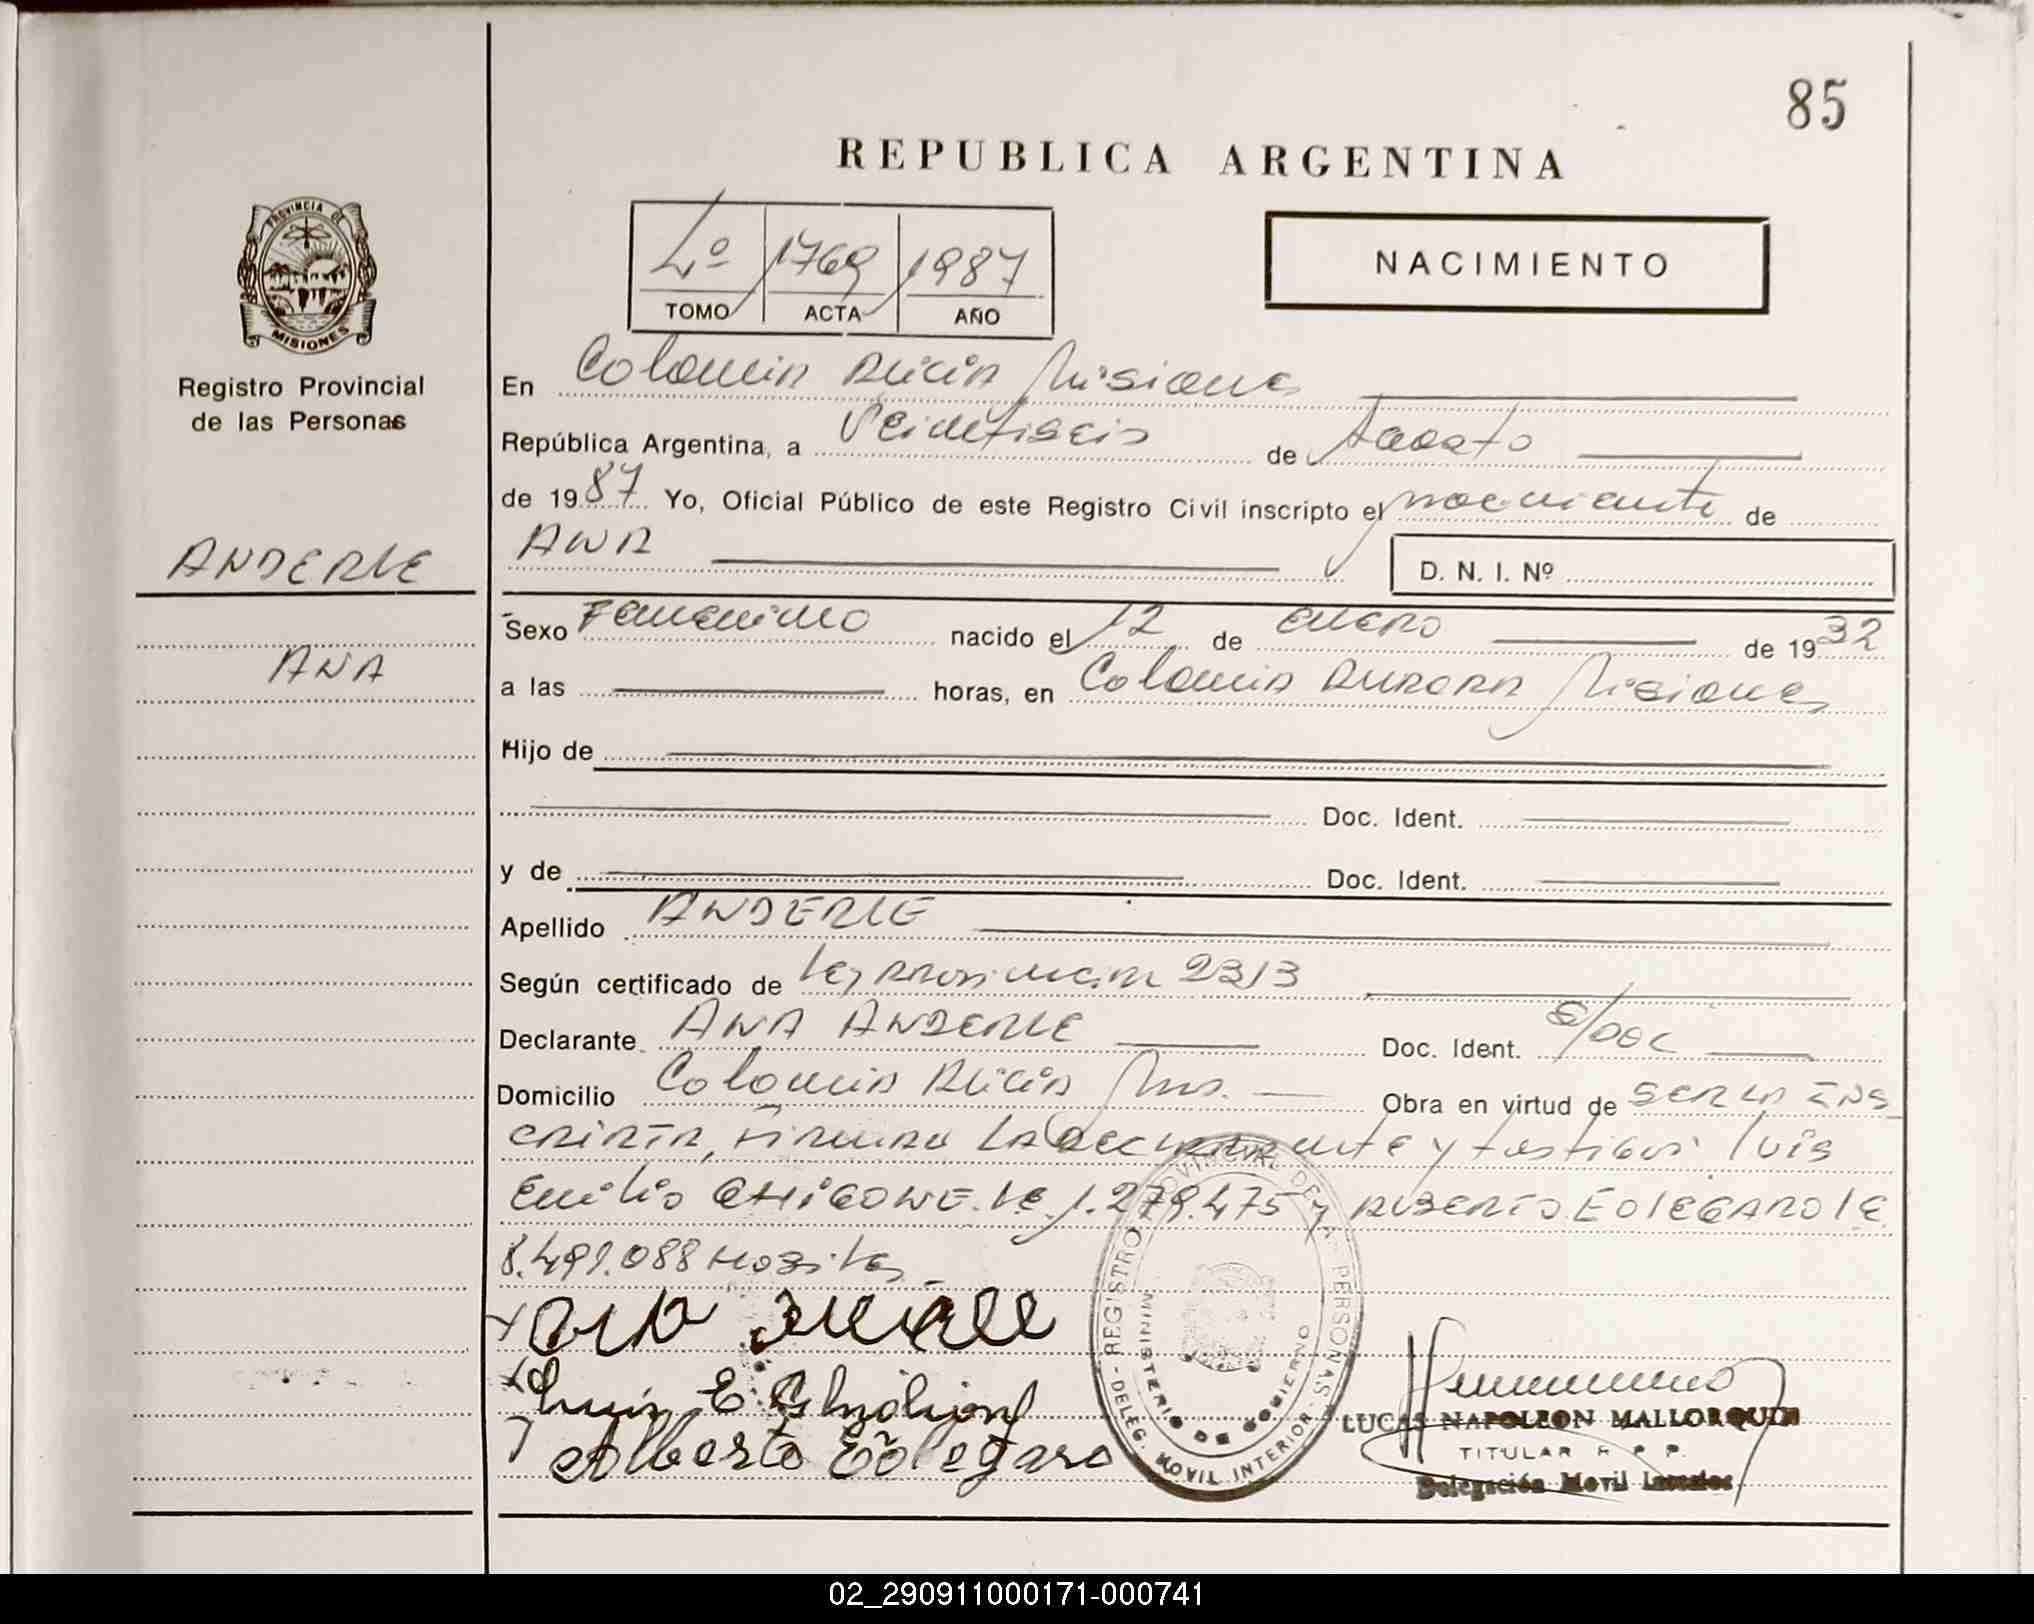 85
REPUBLICA ARGENTINA
PROVINCIA DE
MISIONES
Registro Provincial
de las Personas
4º 1769 1987
TOMO ACTA AÑO
NACIMIENTO
En Colonia Alicia Misiones
República Argentina, a Veintiseis de Agosto
de 1987 Yo, Oficial Público de este Registro Civil inscripto el nacimiento de
ANA
D. N. I. Nº
ANDERLE
ANA
Sexo Femenino nacido el 12 de Enero de 1932
a las horas, en Colonia Aurora Misiones
Hijo de
Doc. Ident.
y de Doc. Ident.
Apellido ANDERLE
Según certificado de Ley Provincial 2313
Declarante ANA ANDERLE Doc. Ident. S/DOC
Domicilio Colonia Alicia Mns. Obra en virtud de SER LA INS
CRIPTA, FIRMAN LA DECLARANTE y testigos Luis
Emilio GHIGONE. LE. 1.279.475 y ALBERTO EOLEGARO LE
8.499.088
Luis E.
Alberto Eolegaro
REGISTRO PROVINCIAL DE LA PERSONAS - DELEG. MOVIL INTERIOR -
MINISTERIO DE GOBIERNO
LUCAS NAPOLEON MALLORQUIN
TITULAR R. P. P.
Delegación Movil
02_290911000171-000741